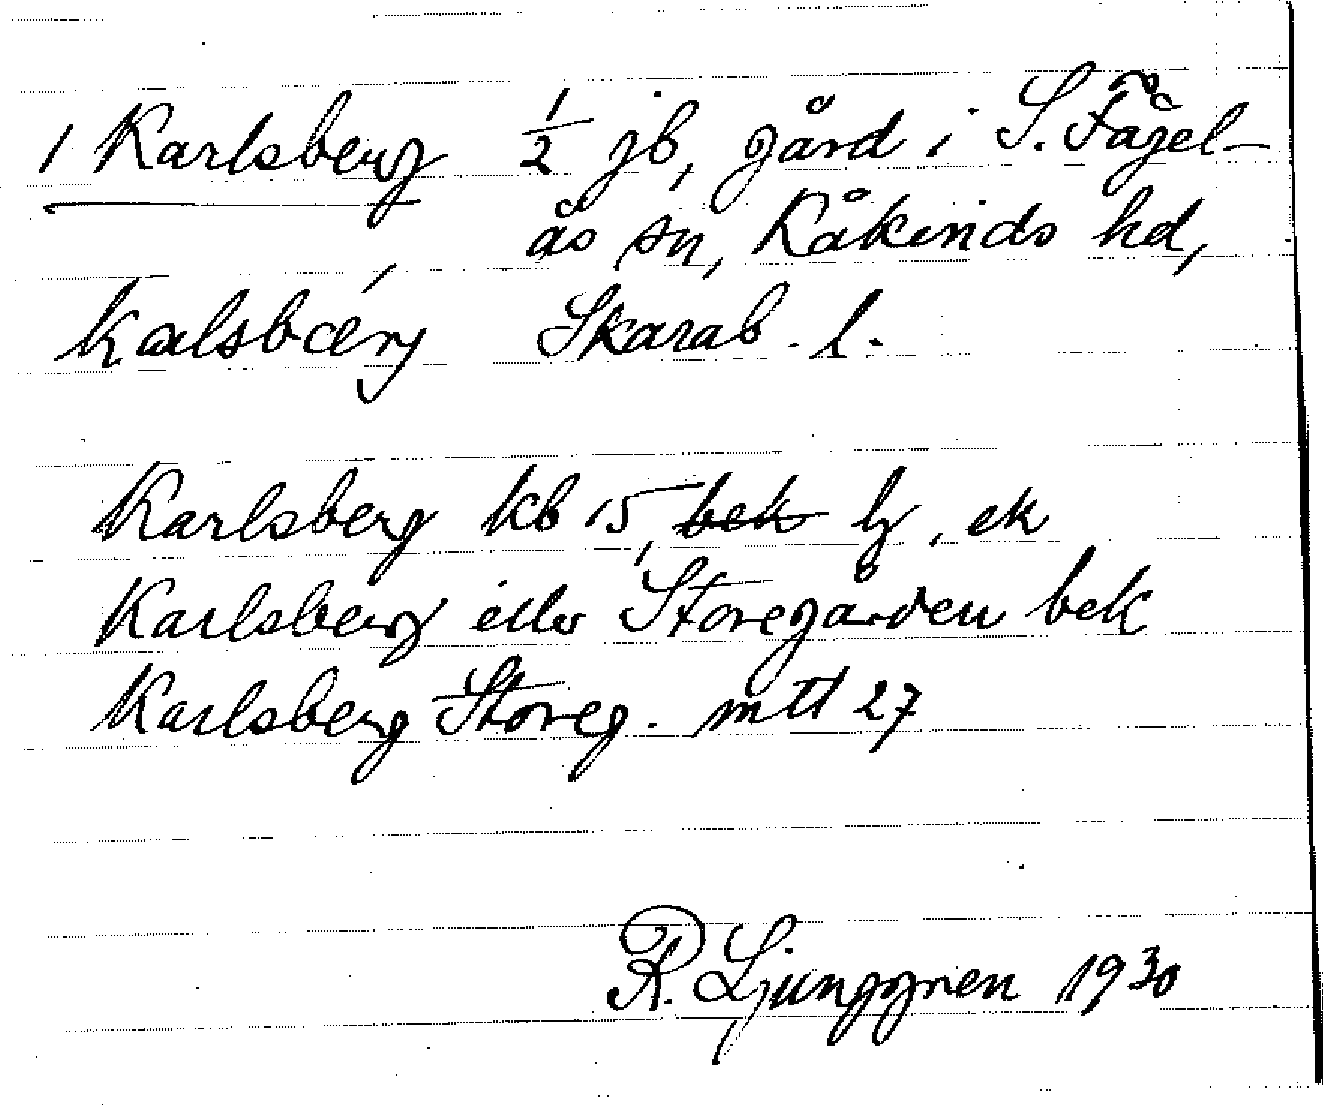 1 Karlsberg 1/2 jb, gård i S. Fågel-
ås sn, Kåkinds hd,
kalsbærj Skarab. l.
Karlsberg kb 15, bek hf, ek
Karlsberg eller Storegården bek
Karlsberg Storeg. mtl 27
R. Ljunggren 1930